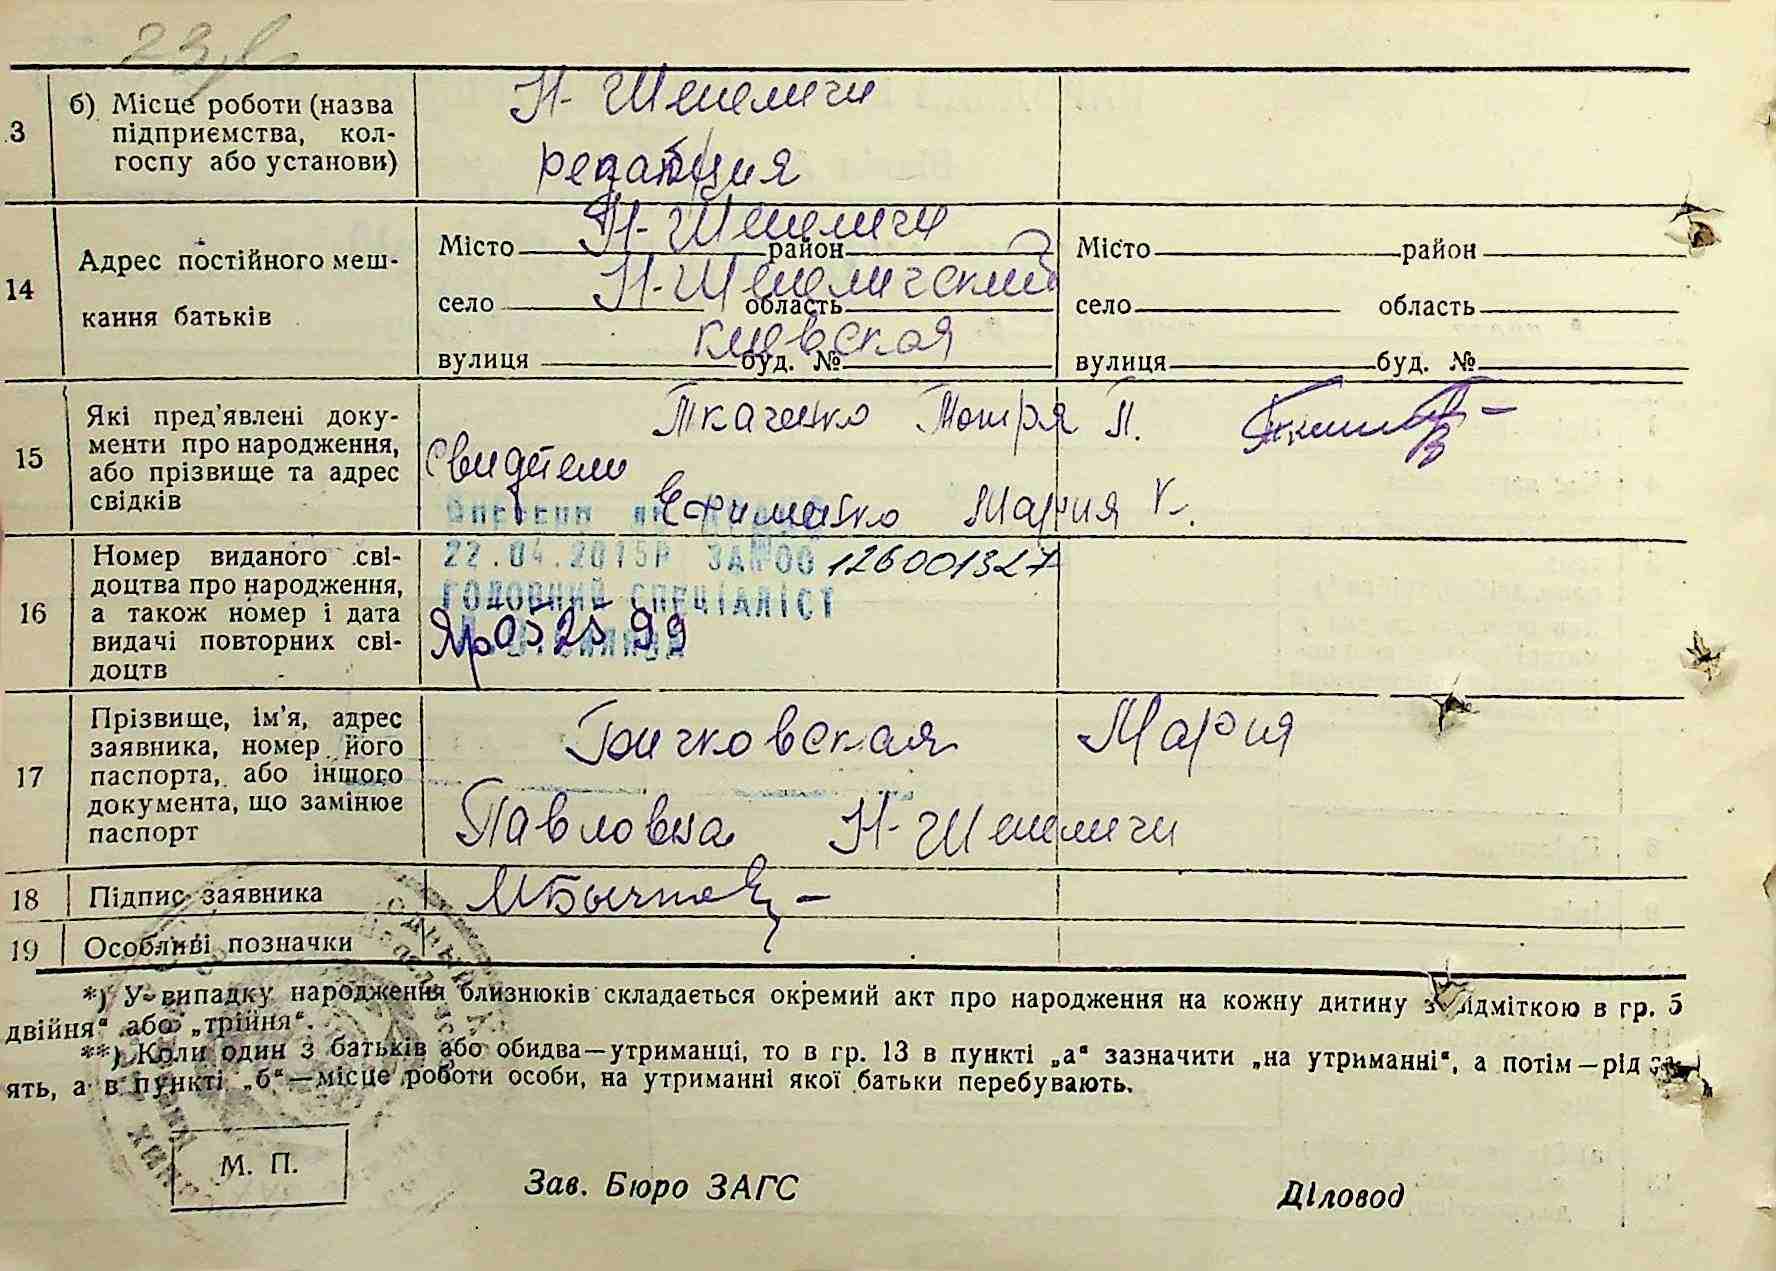 23
3
б) Місце роботи (назва
підприємства, кол-
госпу або установи)
Н-Шепеличи
редакция
14
Адрес постійного меш-
кання батьків
Місто Н-Шепеличи район
село Н-Шепеличский область
вулиця Киевская буд. №
Місто район
село область
вулиця буд. №
15
Які пред'явлені доку-
менти про народження,
або прізвище та адрес
свідків
Ткаченко П.
Свидетели
Ефименко Мария К.
16
Номер виданого сві-
доцтва про народження,
а також номер і дата
видачі повторних сві-
доцтв
22.04.2015Р ЗА№00126001327
ГОЛОВНИЙ СПЕЦІАЛІСТ
052599
17
Прізвище, ім'я, адрес
заявника, номер його
паспорта, або іншого
документа, що замінює
паспорт
Бичковская Мария
Павловна Н-Шепеличи
18
Підпис заявника
19
Особливі позначки
*) У випадку народження близнюків складається окремий акт про народження на кожну дитину з відміткою в гр. 5
двійня“ або „трійня“.
**) Коли один з батьків або обидва—утриманці, то в гр. 13 в пункті „а“ зазначити „на утриманні“, а потім—рід за
ять, а в пункті „б“—місце роботи особи, на утриманні якої батьки перебувають.
М. П.
Зав. Бюро ЗАГС
Діловод